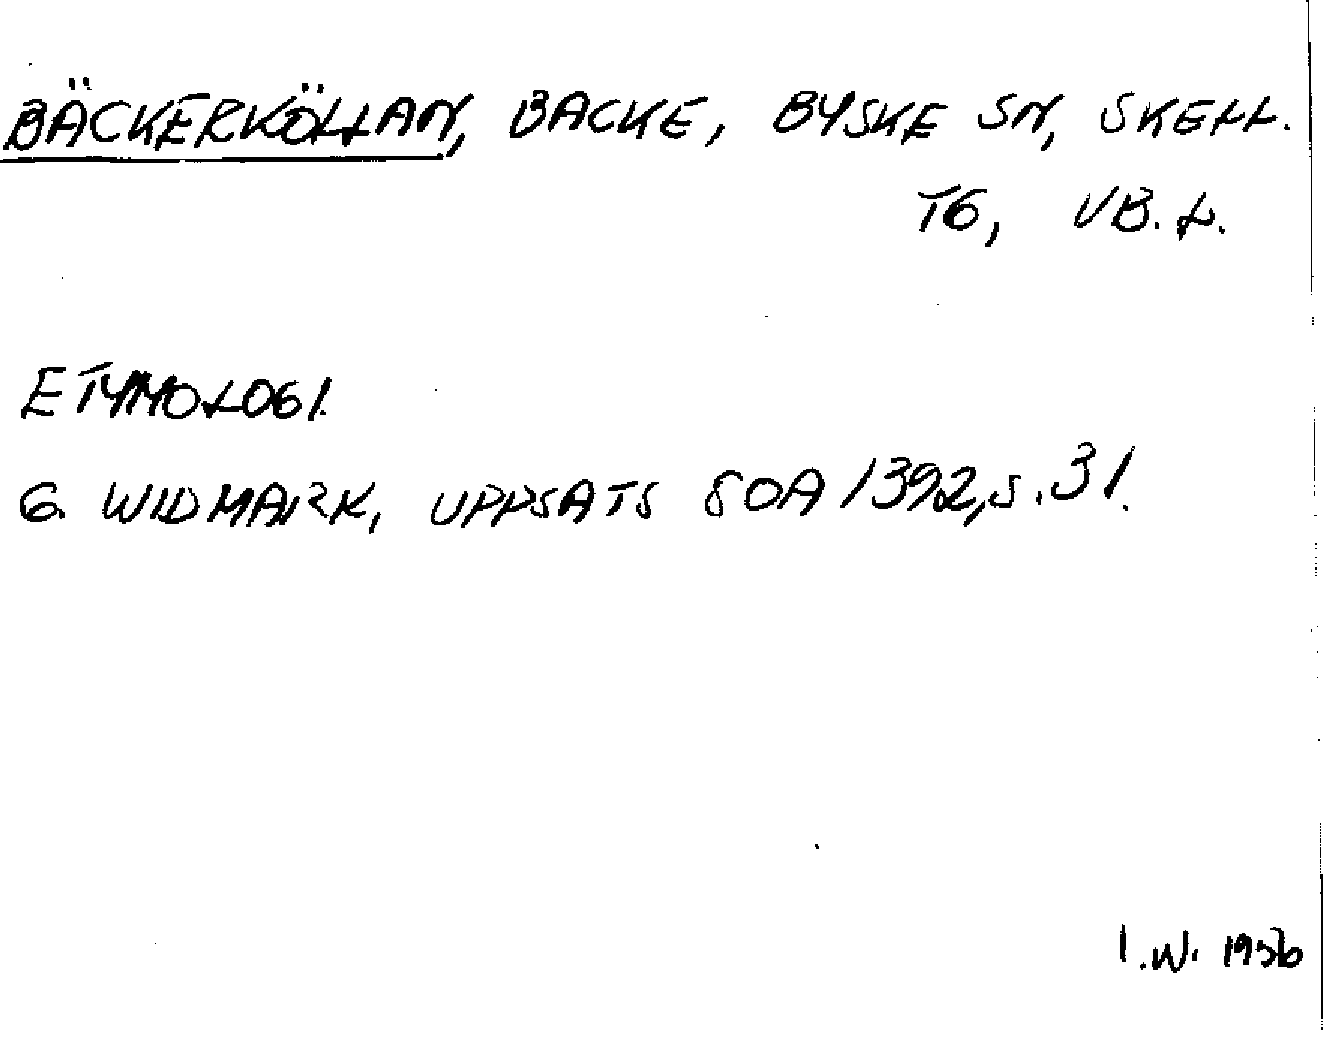 BÄCKERKÖLLAN, BACKE, BYSKE SN, SKELL.
TG, VB. L.
ETYMOLOGI.
G. WIDMARK, UPPSATS SOA 1392, S. 31.
I.W. 1956